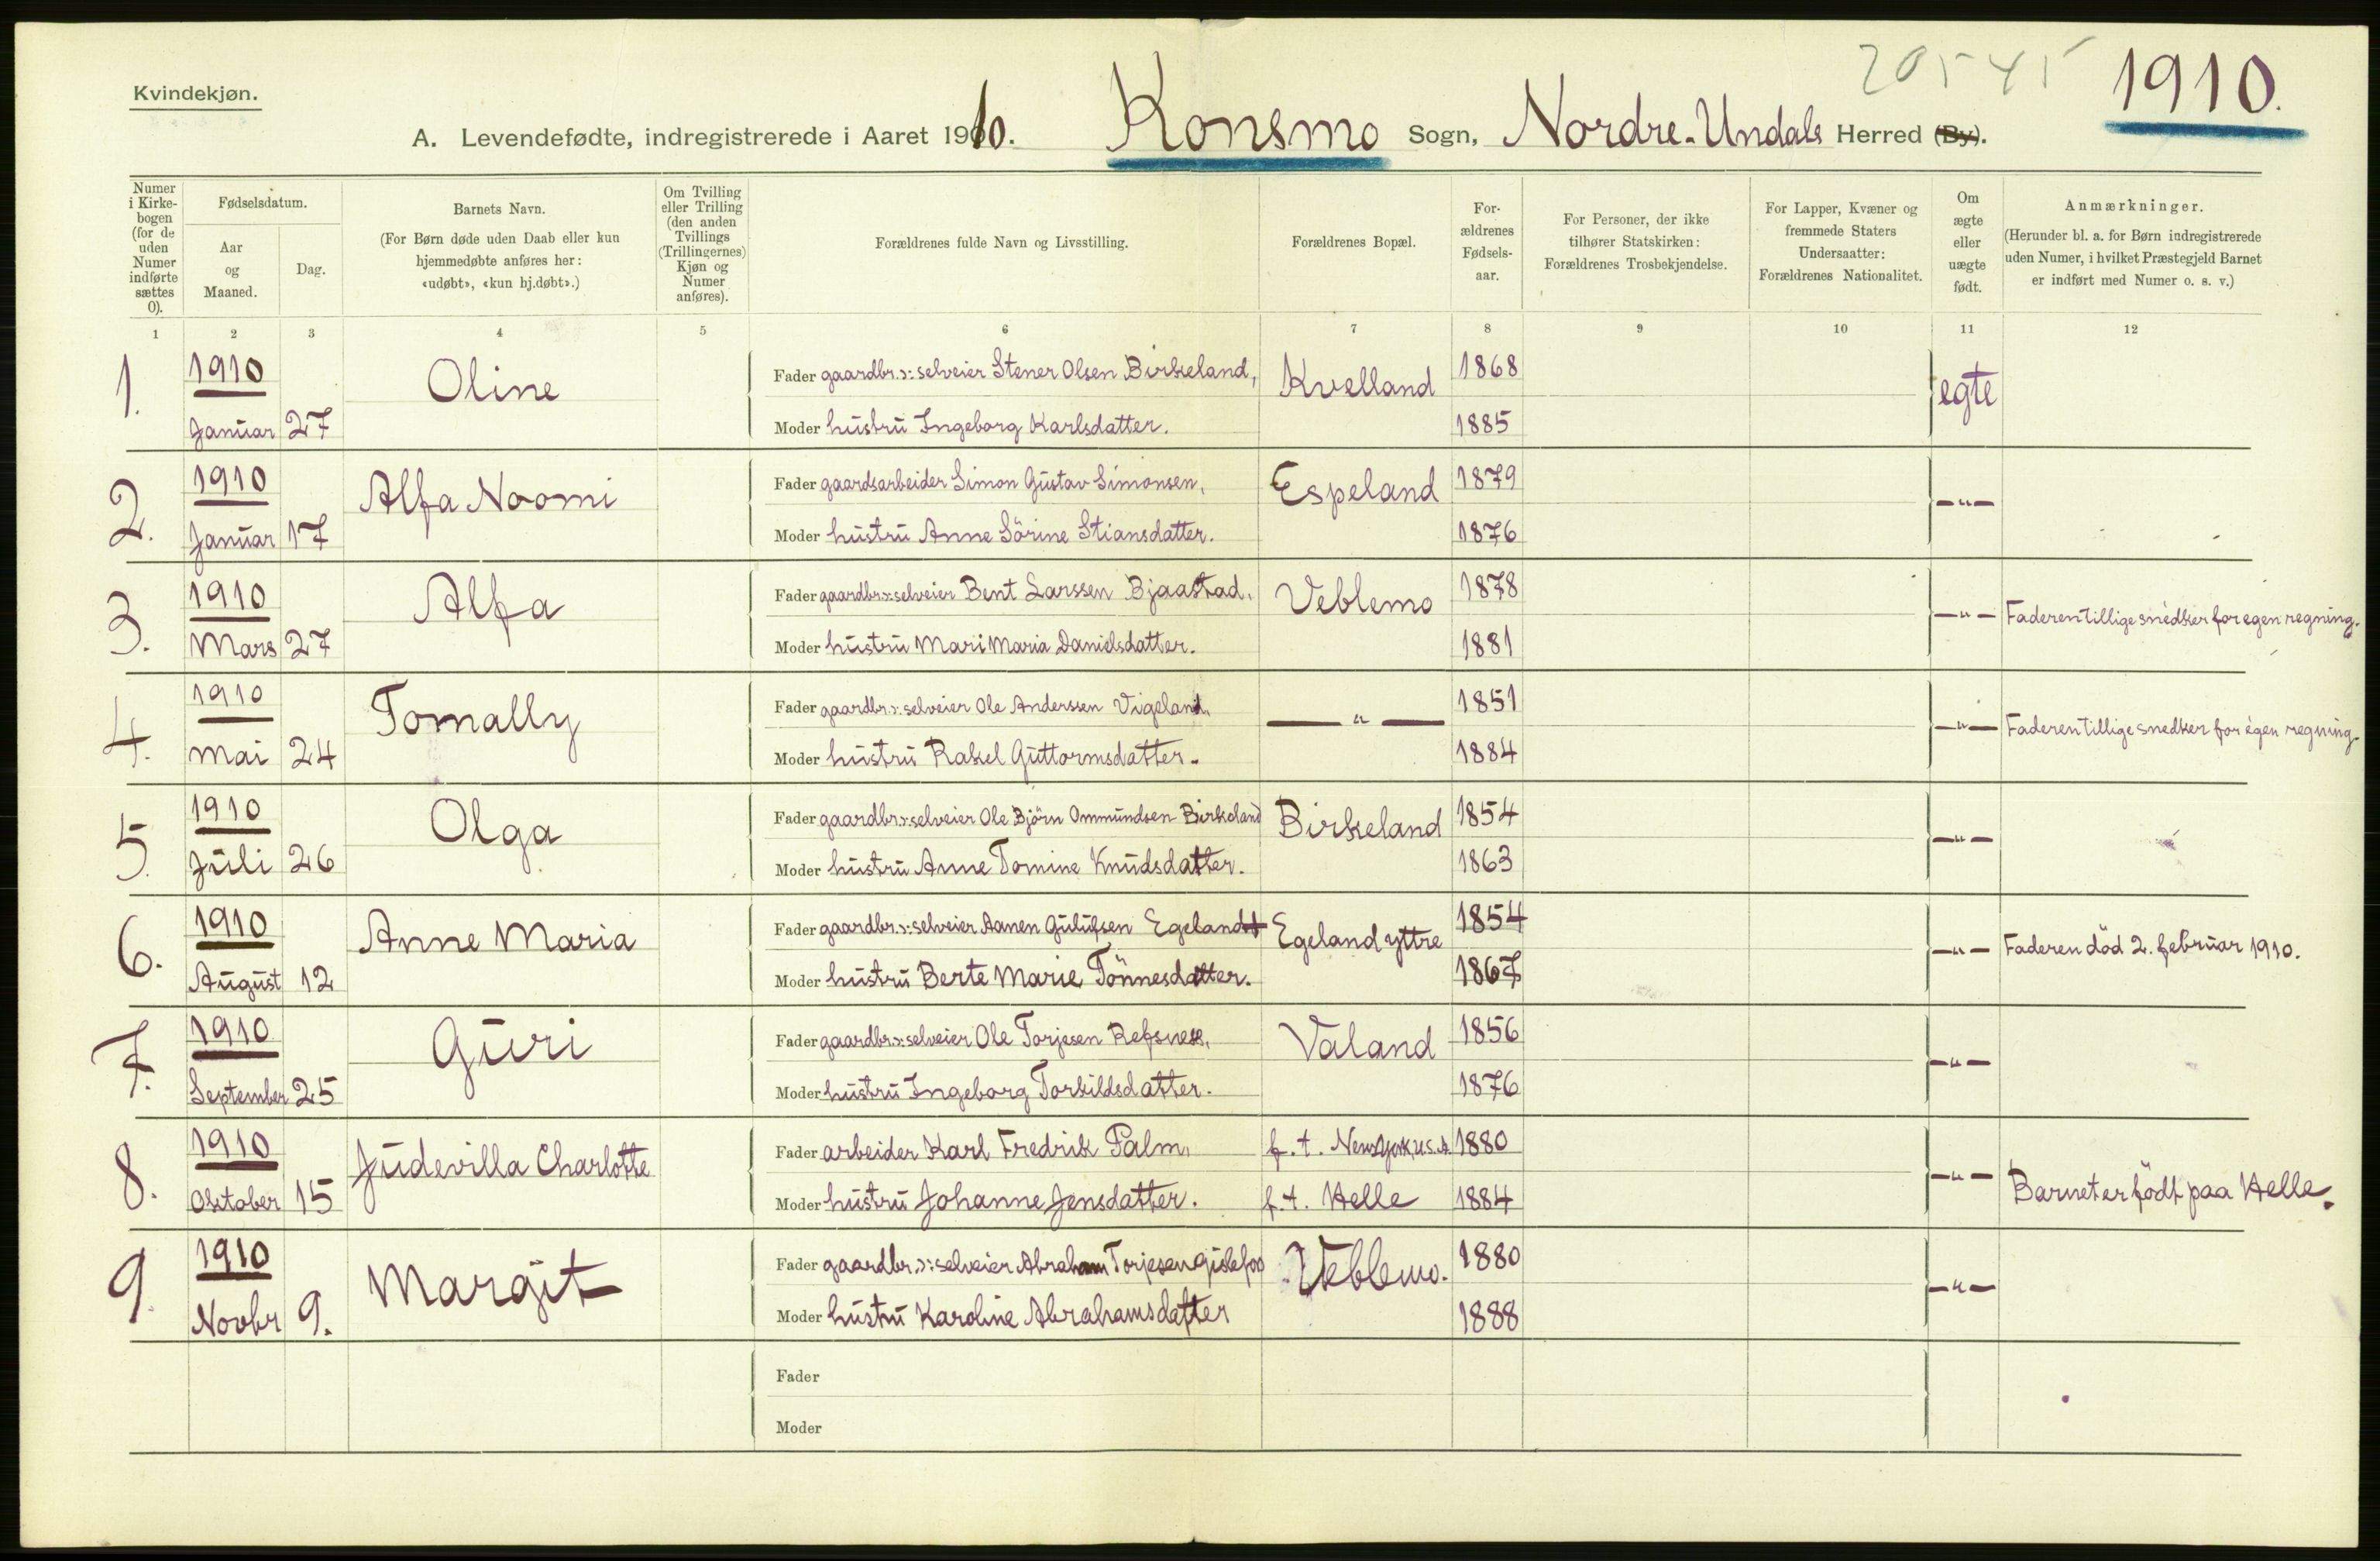 Kvindekjøn.
20545
1910.
A. Levendefødte, indregistrerede i Aaret 1910. Konsmo Sogn, Nordre-Undals Herred (By).
Numer i Kirkebogen (for de uden Numer indførte sættes 0).
Fødselsdatum.
Aar og Maaned.
Dag.
Barnets Navn.
(For Børn døde uden Daab eller kun hjemmedøbte anføres her: «udøbt», «kun hj.døbt».)
Om Tvilling eller Trilling (den anden Tvillings (Trillingernes) Kjøn og Numer anføres).
Forældrenes fulde Navn og Livsstilling.
Forældrenes Bopæl.
Forældrenes Fødselsaar.
For Personer, der ikke tilhører Statskirken: Forældrenes Trosbekjendelse.
For Lapper, Kvæner og fremmede Staters Undersaatter: Forældrenes Nationalitet.
Om ægte eller uægte født.
Anmærkninger.
(Herunder bl. a. for Børn indregistrerede uden Numer, i hvilket Præstegjeld Barnet er indført med Numer o. s. v.)
1 2 3 4 5 6 7 8 9 10 11 12
1. 1910 Januar 27 Oline Fader gaardbr. ɔ: selveier Stener Olsen Birkeland, Kvelland 1868 egte
Moder hustru Ingeborg Karlsdatter. 1885
2. 1910 Januar 17 Alfa Noomi Fader gaardsarbeider Simon Gustav Simonsen, Espeland 1879 —"—
Moder hustru Anne Sörine Stiansdatter. 1876
3. 1910 Mars 27 Alfa Fader gaardbr. ɔ: selveier Bent Larssen Bjaastad. Veblemo 1878 —"— Faderen tillige snedker for egen regning.
Moder hustru Mari Maria Danielsdatter. 1881
4. 1910 Mai 24 Tomally Fader gaardbr. ɔ: selveier Ole Anderssen Vigeland. —"— 1851 —"— Faderen tillige snedker for egen regning.
Moder hustru Rakel Guttormsdatter. 1884
5. 1910 Juli 26 Olga Fader gaardbr. ɔ: selveier Ole Björn Ommundsen Birkeland Birkeland 1854 —"—
Moder hustru Anne Tomine Knudsdatter. 1863
6. 1910 August 12 Anne Maria Fader gaardbr. ɔ: selveier Aanen Gulufsen Egeland † Egeland yttre 1854 —"— Faderen död 2. februar 1910.
Moder hustru Berte Marie Tönnesdatter. 1867
7. 1910 September 25 Guri Fader gaardbr. ɔ: selveier Ole Torjesen Refsnes, Valand 1856 —"—
Moder hustru Ingeborg Torkildsdatter. 1876
8. 1910 Oktober 15 Judevilla Charlotte Fader arbeider Karl Fredrik Palm, f. t. New York, U.S.A. 1880 —"— Barnet er födt paa Helle.
Moder hustru Johanne Jensdatter. f. t. Helle 1884
9. 1910 Novbr 9. Margit Fader gaardbr. ɔ: selveier Abraham Torjesen Gislefos Veblemo. 1880 —"—
Moder hustru Karoline Abrahamsdatter 1888
Fader
Moder